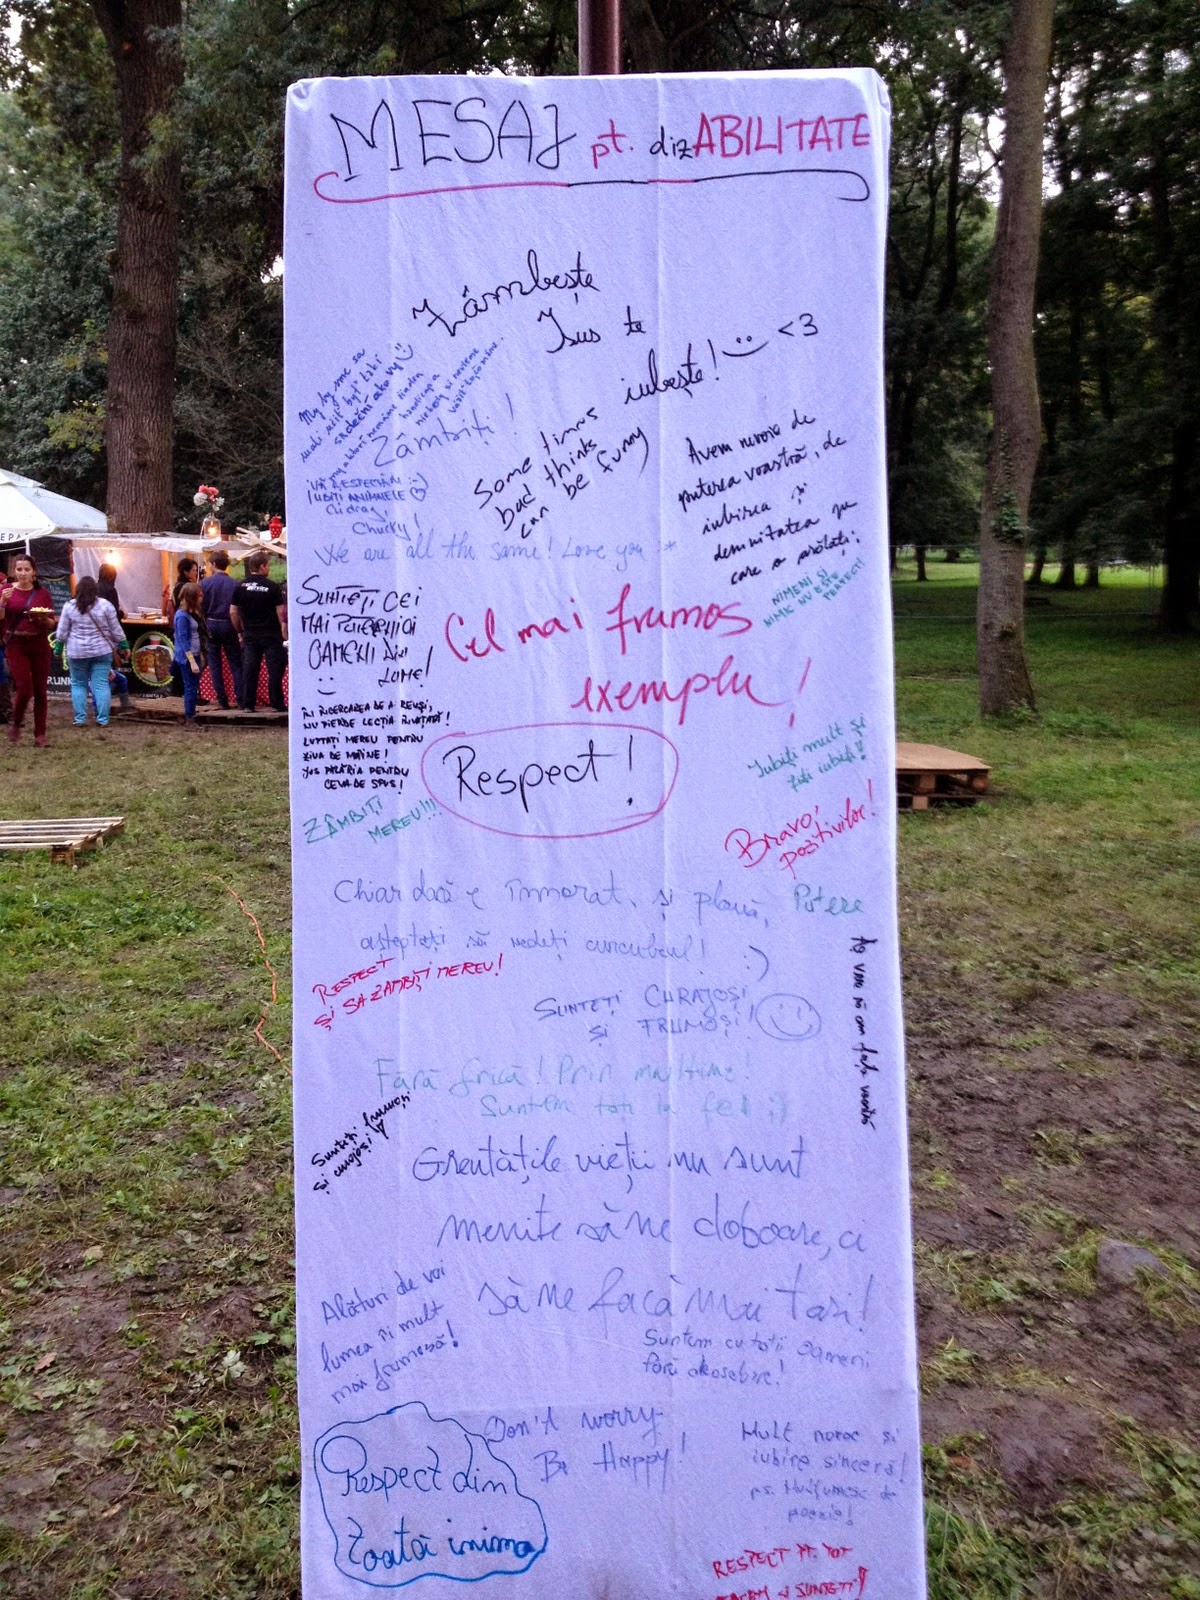 MESAJ pt. dizABILITATE
Zâmbește
Isus te
iubește! <3
Zâmbiți!
Some times
bad thinks
can be funny
Avem nevoie de
puterea voastră, de
iubirea și
demnitatea pe
care o arătați!
NIMENI ȘI
NIMIC NU ESTE
PERFECT!
VĂ RESPECTĂM :-)
IUBIȚI ANIMALELE
Chucky!
We are all the same! Love you :*
SUNTEȚI CEI
MAI PUTERNICI
OAMENI DIN
LUME!
Cel mai frumos
exemplu!
ÎN ÎNCERCAREA DE A REUȘI,
NU PIERDE LECȚIA ÎNVĂȚATĂ!
LUPTAȚI MEREU PENTRU
ZIUA DE MÂINE!
JOS PĂLĂRIA PENTRU
CEVA DE SPUS!
Respect!
Iubiți mult și
fiți iubiți!
ZÂMBIȚI
MEREU!!!
Bravo,
pozitivilor!
Chiar dacă e înnorat, și plouă,
așteptați să vedeți curcubeul! :)
Putere
RESPECT
ȘI SA ZAMBIȚI MEREU!
SUNTEȚI CURAJOȘI
ȘI FRUMOȘI!
Fără frică! Prin mulțime!
Suntem toți la fel ;)
Sunteți frumoși
și curajoși
Greutățile vieții nu sunt
menite să ne doboare, ci
să ne facă mai tari!
Alături de voi
lumea îi mult
mai frumoasă!
Suntem cu toții oameni
fără deosebire!
Don't worry
Be Happy!
Mult noroc și
iubire sinceră!
ps. Mulțumesc de
poezie!
Respect din
toată inima
RESPECT PT. TOT